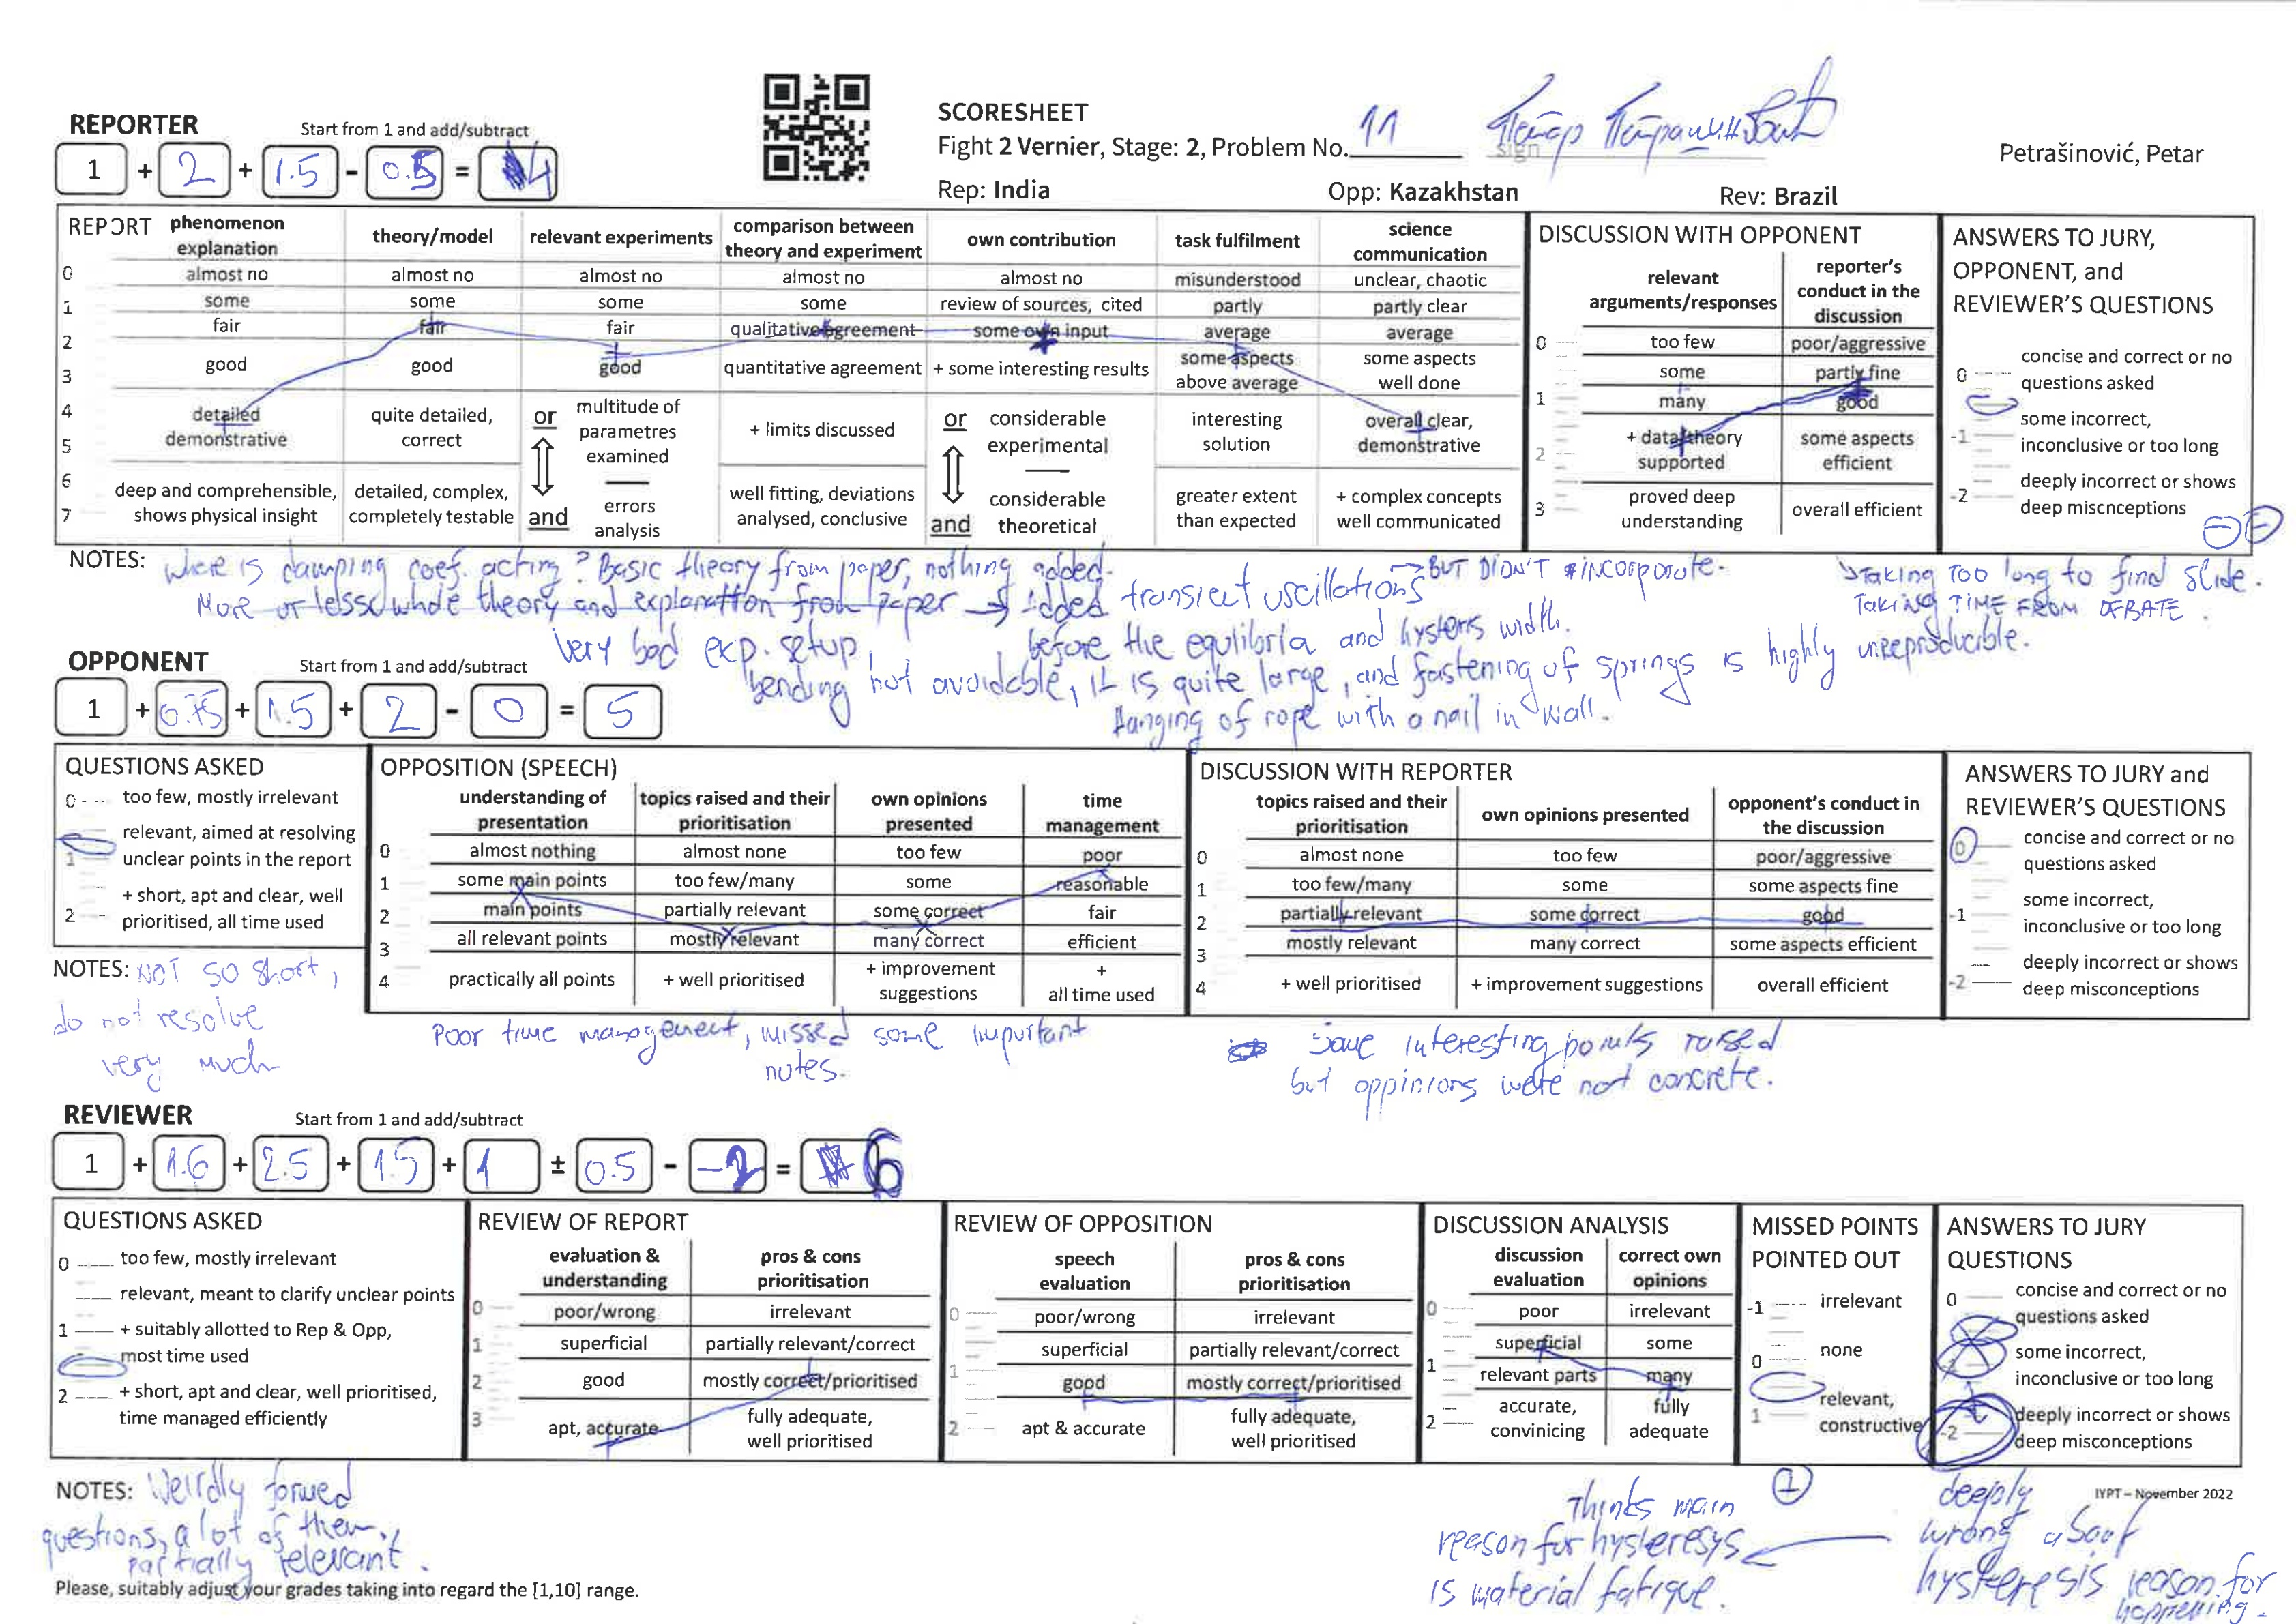 SCORESHEET
Fight 2 Vernier, Stage: 2, Problem No. 11
Петар Петрашиновић
sign
Petrašinović, Petar
Rep: India Opp: Kazakhstan Rev: Brazil
REPORTER Start from 1 and add/subtract
1 + 2 + 1.5 - 0.5 = 4
REPORT
phenomenon explanation
almost no
some
fair
good
detailed demonstrative
deep and comprehensible, shows physical insight
theory/model
almost no
some
fair
good
quite detailed, correct
detailed, complex, completely testable
relevant experiments
almost no
some
fair
good
or
multitude of parametres examined
and
errors analysis
comparison between theory and experiment
almost no
some
qualitative agreement
quantitative agreement
+ limits discussed
well fitting, deviations analysed, conclusive
own contribution
almost no
review of sources, cited
some own input
+ some interesting results
or
considerable experimental
and
considerable theoretical
task fulfilment
misunderstood
partly
average
some aspects above average
interesting solution
greater extent than expected
science communication
unclear, chaotic
partly clear
average
some aspects well done
overall clear, demonstrative
+ complex concepts well communicated
0
1
2
3
4
5
6
7
DISCUSSION WITH OPPONENT
relevant arguments/responses
too few
some
many
+ data/theory supported
proved deep understanding
reporter's conduct in the discussion
poor/aggressive
partly fine
good
some aspects efficient
overall efficient
0
1
2
3
ANSWERS TO JURY, OPPONENT, and REVIEWER'S QUESTIONS
0 concise and correct or no questions asked
-1 some incorrect, inconclusive or too long
-2 deeply incorrect or shows deep miscnceptions
NOTES: Where is damping coef. acting? Basic theory from paper, nothing added.
More or less whole theory and explanation from paper → Added transient oscillations → BUT DIDN'T incorporate.
before the equilibria and hysteris width.
→ Taking too long to find slide.
Taking TIME FROM DEBATE.
Very bad exp. setup,
bending not avoidable, it is quite large, and fastening of springs is highly unreproducible.
Hanging of rope with a nail in wall.
OPPONENT Start from 1 and add/subtract
1 + 0.75 + 1.5 + 2 - 0 = 5
QUESTIONS ASKED
0 too few, mostly irrelevant
1 relevant, aimed at resolving unclear points in the report
2 + short, apt and clear, well prioritised, all time used
NOTES: NOT so short,
do not resolve
very much
OPPOSITION (SPEECH)
understanding of presentation
almost nothing
some main points
main points
all relevant points
practically all points
topics raised and their prioritisation
almost none
too few/many
partially relevant
mostly relevant
+ well prioritised
own opinions presented
too few
some
some correct
many correct
+ improvement suggestions
time management
poor
reasonable
fair
efficient
+ all time used
0
1
2
3
4
Poor time management, missed some important
notes.
DISCUSSION WITH REPORTER
topics raised and their prioritisation
almost none
too few/many
partially relevant
mostly relevant
+ well prioritised
own opinions presented
too few
some
some correct
many correct
+ improvement suggestions
opponent's conduct in the discussion
poor/aggressive
some aspects fine
good
some aspects efficient
overall efficient
0
1
2
3
4
Some interesting points raised
but oppinions were not concrete.
ANSWERS TO JURY and REVIEWER'S QUESTIONS
0 concise and correct or no questions asked
-1 some incorrect, inconclusive or too long
-2 deeply incorrect or shows deep misconceptions
REVIEWER Start from 1 and add/subtract
1 + 1.6 + 2.5 + 1.5 + 1 ± 0.5 - -2 = 6
QUESTIONS ASKED
0 too few, mostly irrelevant
relevant, meant to clarify unclear points
1 + suitably allotted to Rep & Opp, most time used
2 + short, apt and clear, well prioritised, time managed efficiently
REVIEW OF REPORT
evaluation & understanding
poor/wrong
superficial
good
apt, accurate
pros & cons prioritisation
irrelevant
partially relevant/correct
mostly correct/prioritised
fully adequate, well prioritised
0
1
2
3
REVIEW OF OPPOSITION
speech evaluation
poor/wrong
superficial
good
apt & accurate
pros & cons prioritisation
irrelevant
partially relevant/correct
mostly correct/prioritised
fully adequate, well prioritised
0
1
2
DISCUSSION ANALYSIS
discussion evaluation
poor
superficial
relevant parts
accurate, convinicing
correct own opinions
irrelevant
some
many
fully adequate
0
1
2
MISSED POINTS POINTED OUT
-1 irrelevant
0 none
1 relevant, constructive
ANSWERS TO JURY QUESTIONS
0 concise and correct or no questions asked
some incorrect, inconclusive or too long
-2 deeply incorrect or shows deep misconceptions
NOTES: Weirdly formed
questions, a lot of them,
partially relevant.
Thinks main
reason for hysteresys
is material fatigue.
deeply
wrong about
hysteresis reason for
happening.
IYPT – November 2022
Please, suitably adjust your grades taking into regard the [1,10] range.